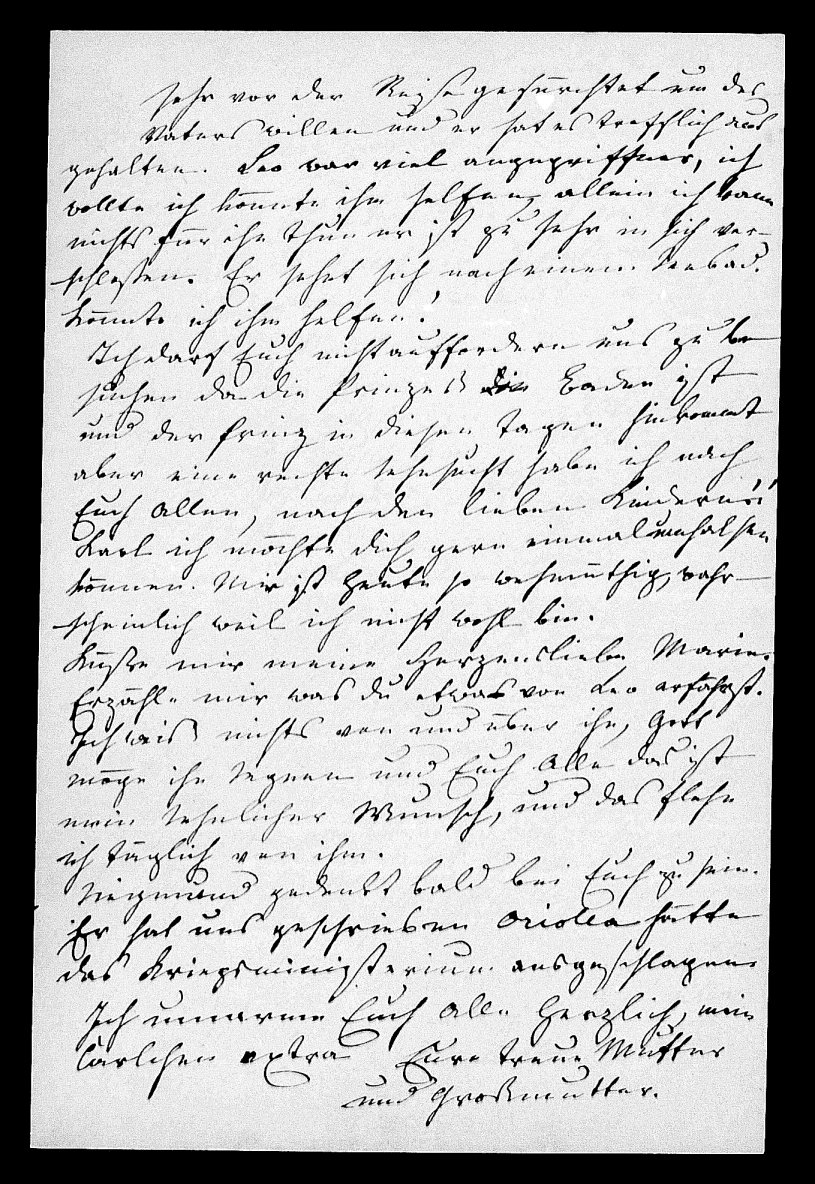 sehr vor der Reise gefürchtet um des
Vaters willen und er hat es trefflich aus
gehalten. Leo war viel angegriffner, ich
wollte ich könnte ihm helfen, allein ich kann
nichts für ihn thun er ist zu sehr in sich ver-
schlossen. Er sehnt sich nach einem Seebad.
könnte ich ihm helfen!
Ich darf Euch nicht auffordern uns zu be
suchen da die Prinzeß in Baden ist
und der Prinz in diesen Tagen hinkommt
aber eine rechte Sehnsucht habe ich nach
Euch Allen, nach den lieben Kindern
Karl ich möchte dich gern einmal umhalsen
können. Mir ist heute so wehmüthig, wahr-
scheinlich weil ich nicht wohl bin.
Küsse mir meine Herzensliebe Marie.
Erzähle mir was du etwas von Leo erfährst.
Ich weiß nichts von und über ihn, Gott
möge ihn segnen und Euch Alle das ist
mein sehnlicher Wunsch, und das flehe
ich täglich von ihm.
Siegmund gedenkt bald bei Euch zu sein.
Er hat uns geschrieben Oriolla hätte
das Kriegsministerium ausgeschlagen.
Ich umarme Euch Alle herzlich, mein
Carlchen extra Eure treue Mutter
und Großmutter.